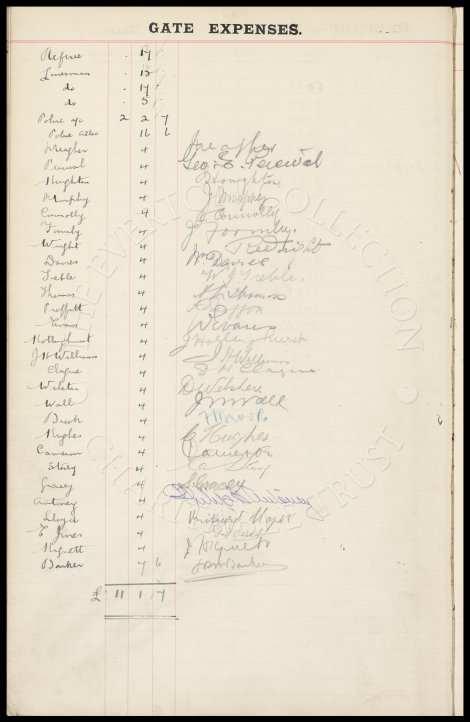 GATE EXPENSES.
Referee 17
Linesman 12
do 17
do 5
Police a/c 2 2 7
Police 16 6
Meagher 4
Percival 4 Geo. E. Percival
Houghton 4 Houghton
Murphy 4 J Murphy
Connolly 4 J Connolly
Formby 4 J Formby
Wright 4 Wright
Davies 4 Wm Davies
Treble 4 W. J. Treble
Thomas 4 Thomas
Proffitt 4
Evans 4 W Evans
Hollinghurst 4 J Hollinghurst
J H Williams 4 J H Williams
Clague 4 E H Clague
Webster 4 D Webster
Wall 4 J Wall
Brook 4 Brook
Hughes 4 E Hughes
Cameron 4 Cameron
Story 4 Story
Gracey 4 Gracey
4
Lloyd 4 Lloyd
E Jones 4 Jones
4
Barker 7 6 Barker
£ 11 1 7
THE EVERTON COLLECTION
CHARITABLE TRUST